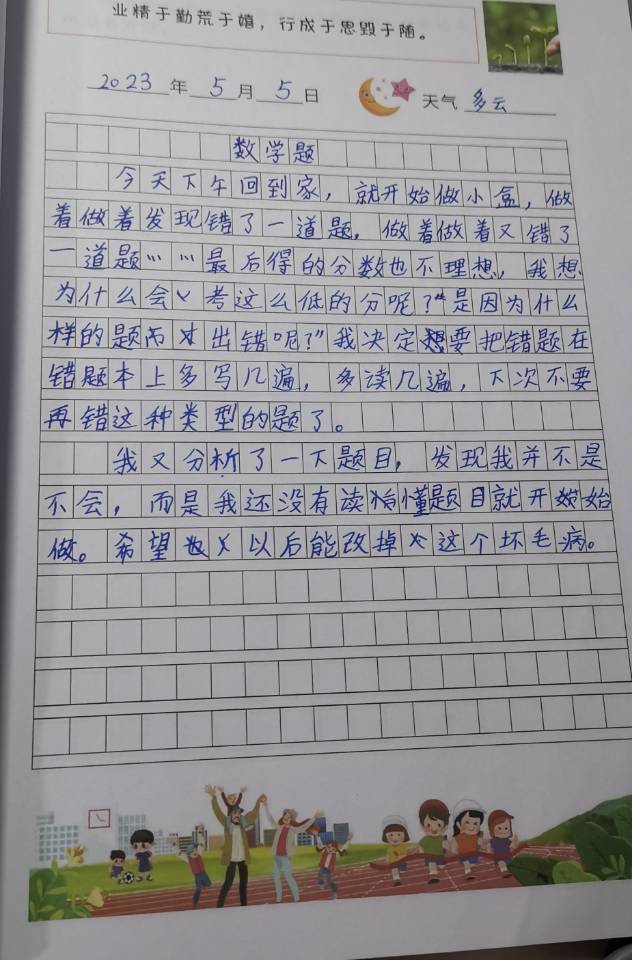 业精于勤荒于嬉，行成于思毁于随。
2023年5月5日 天气 多云
数学题
今天下午回到家，就开始做小盒，做
着做着发现错了一道题，做着做着又错了
一道题……最后得的分数也不理想，我想
为什么会考这么低的分呢？“是因为什么
样的题而出错呢？”我决定要把错题在
错题本上多写几遍，多读几遍，下次不要
再错这种类型的题了。
我又分析了一下题目，发现我并不是
不会，而是我还没有读懂题目就开始
做。希望以后能改掉这个坏毛病。